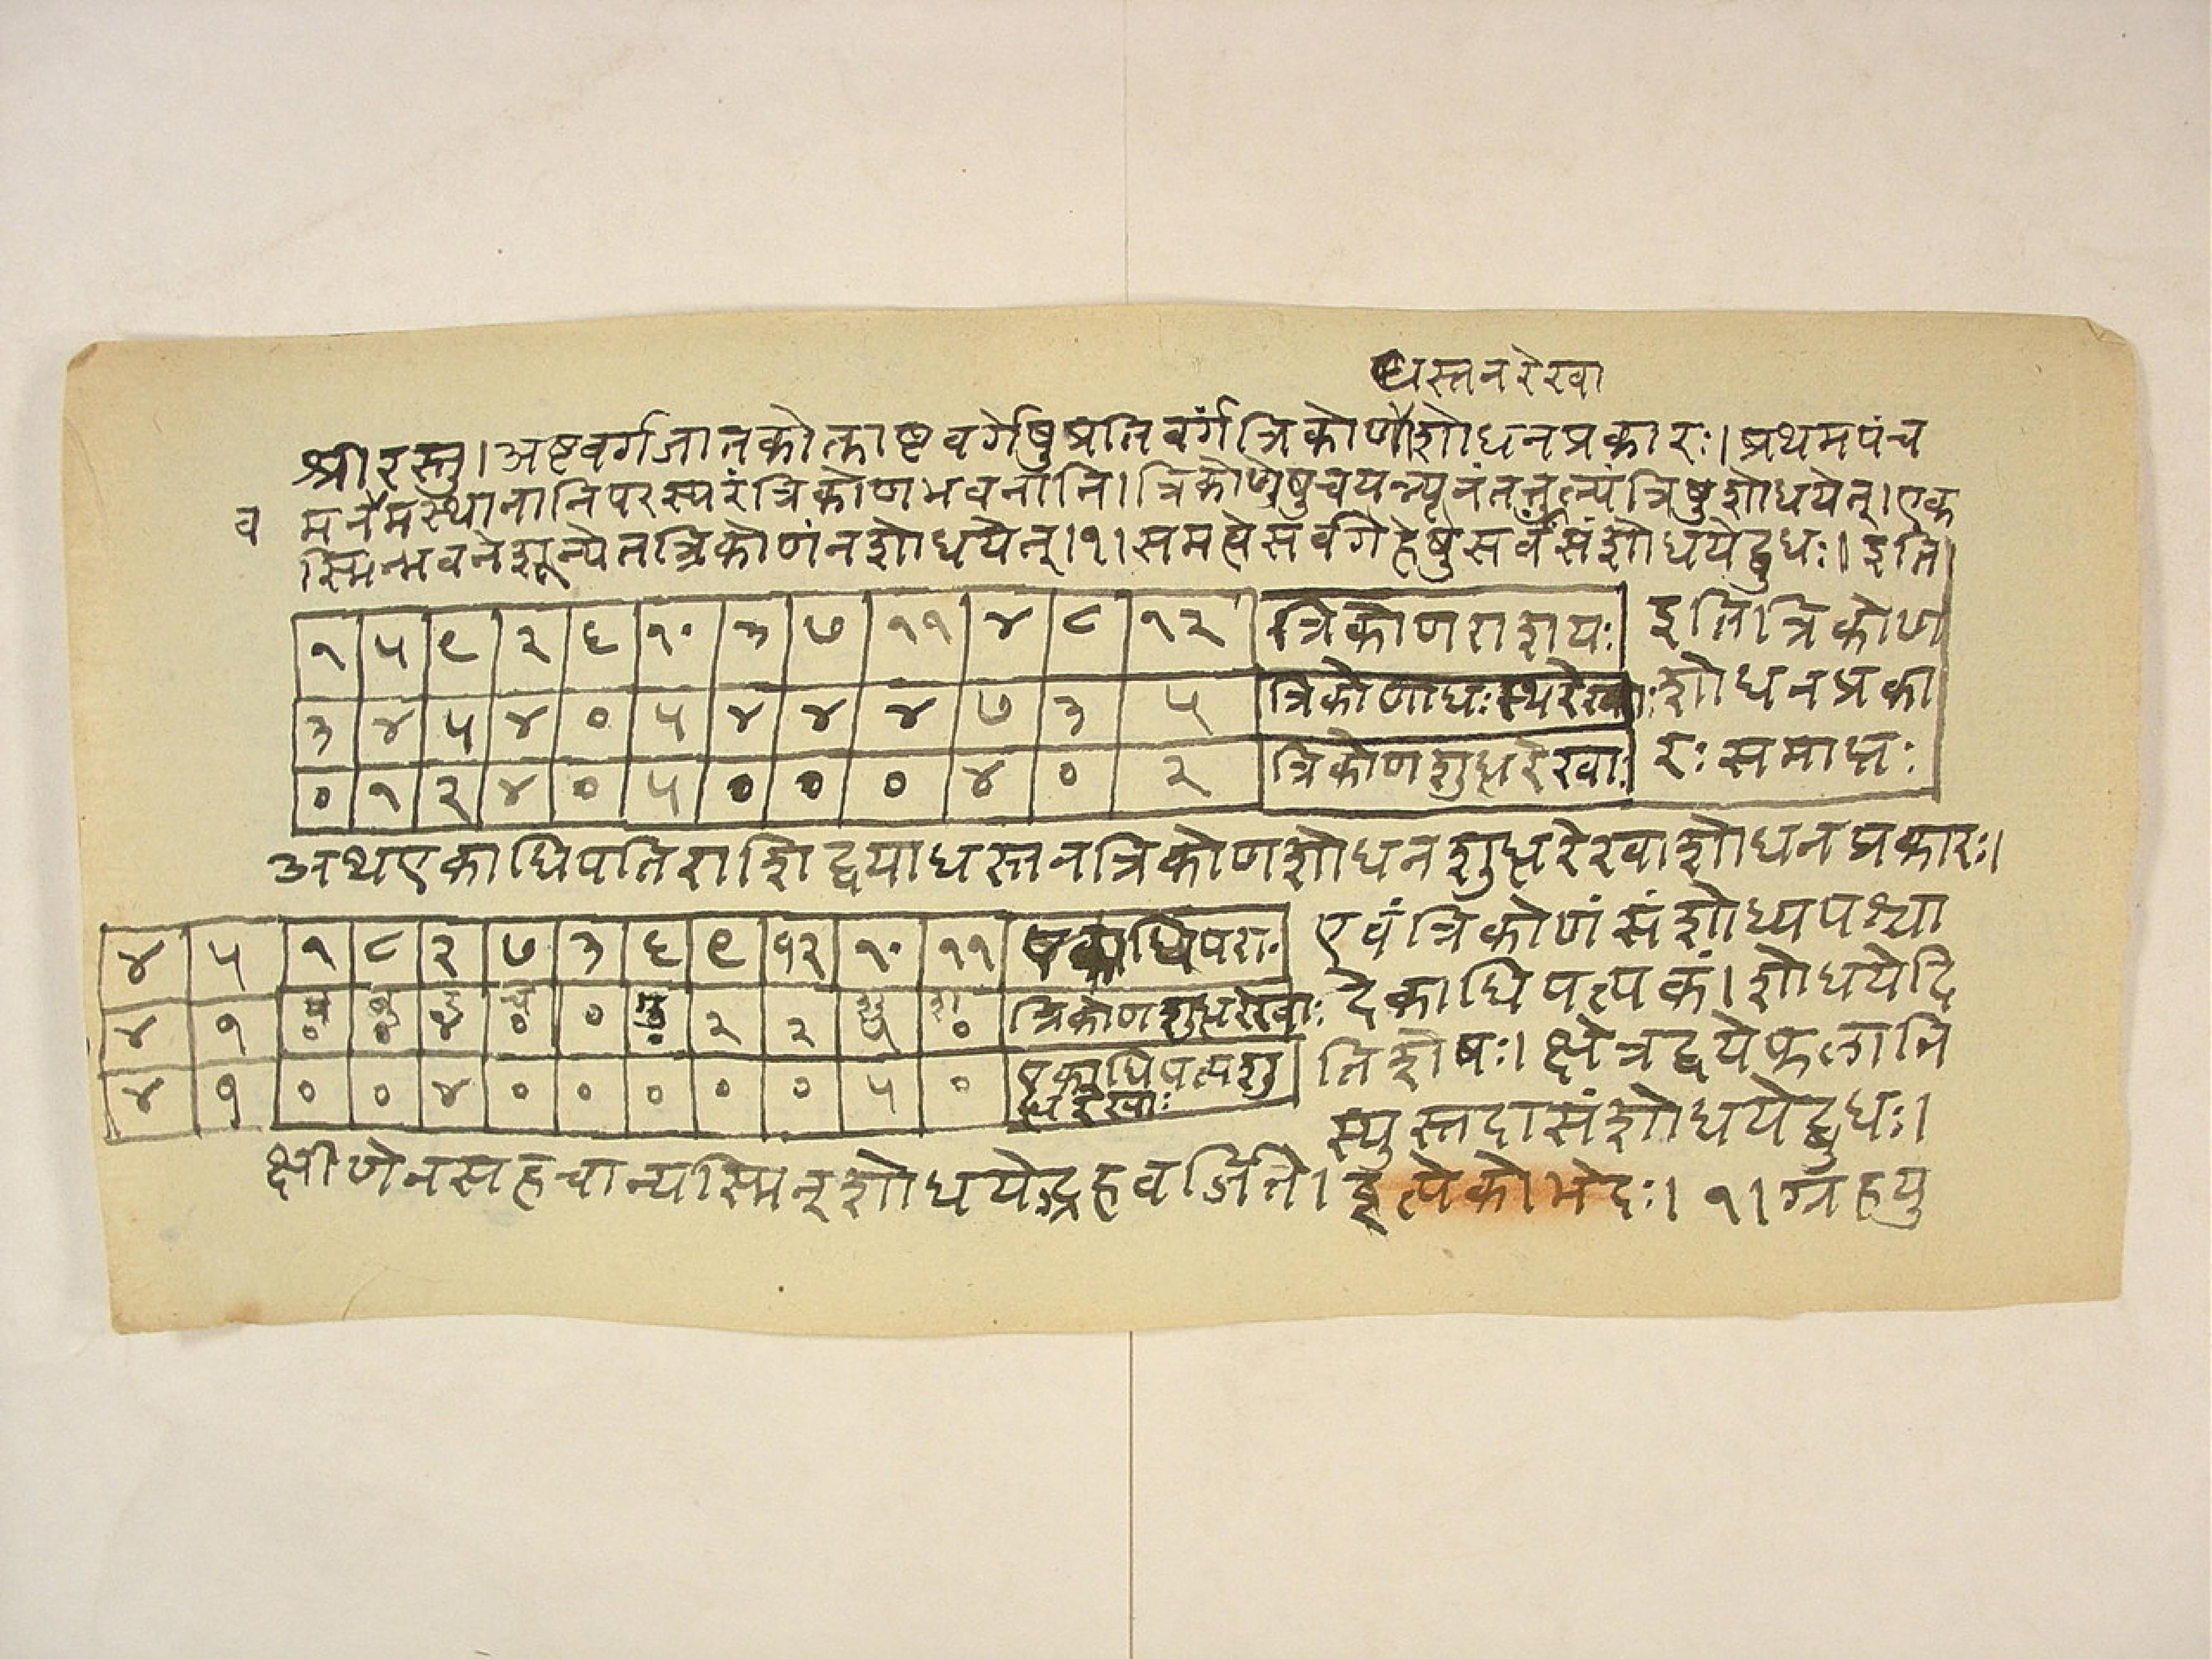 धस्तनरेखा
श्रीरस्तु। अष्टवर्गजातकोत्काष्टवर्गेषुप्रतिवर्गंत्रिकोणैशोधनप्रकारः। प्रथमपंच
व
मनैमस्थानानिपरस्परंत्रिकोणभवनानि। त्रिकोणेषुचयन्न्यूनंतत्तुल्यंत्रिषुशोधयेत्। एक
स्मिन्भवनेशून्येतत्रिकोणंनशोधयेत्।१। समत्वेसर्वगेहेषुसर्वंसंशोधयेद्बुधः॥ इति।
१ ५ ९ २ ६ १० ३ ७ ११ ४ ८ १२ त्रिकोणराशयः
३ ४ ५ ४ ० ५ ४ ४ ४ ७ ३ ५ त्रिकोणाधःस्थरेखाः
० १ २ ४ ० ५ ० ० ० ४ ० २ त्रिकोणशुद्धरेखाः
इतित्रिकोण
शोधनप्रका
रःसमाप्तः
अथएकाधिपतिराशिद्वयाधस्तनत्रिकोणशोधनशुद्धरेखाशोधनप्रकारः।
४ ५ १ ८ २ ७ ३ ६ ९ १२ १० ११ एकाधिपरा०
४ १ ० ० ४ ० ० ० २ २ ५ ० त्रिकोणशुद्धरेखाः
४ १ ० ० ४ ० ० ० ० ० ५ ० एकाधिपत्यशु
द्धरेखाः
एवंत्रिकोणंसंशोध्यपश्चा
देकाधिपत्यकं। शोधयेदि
तिशेषः। क्षेत्रद्वयेफलानि
स्युस्तदासंशोधयेद्बुधः।
क्षीणेनसहचान्यस्मिन्शोधयेद्ग्रहवर्जिते। इत्येकोभेदः। १। ग्रहयु